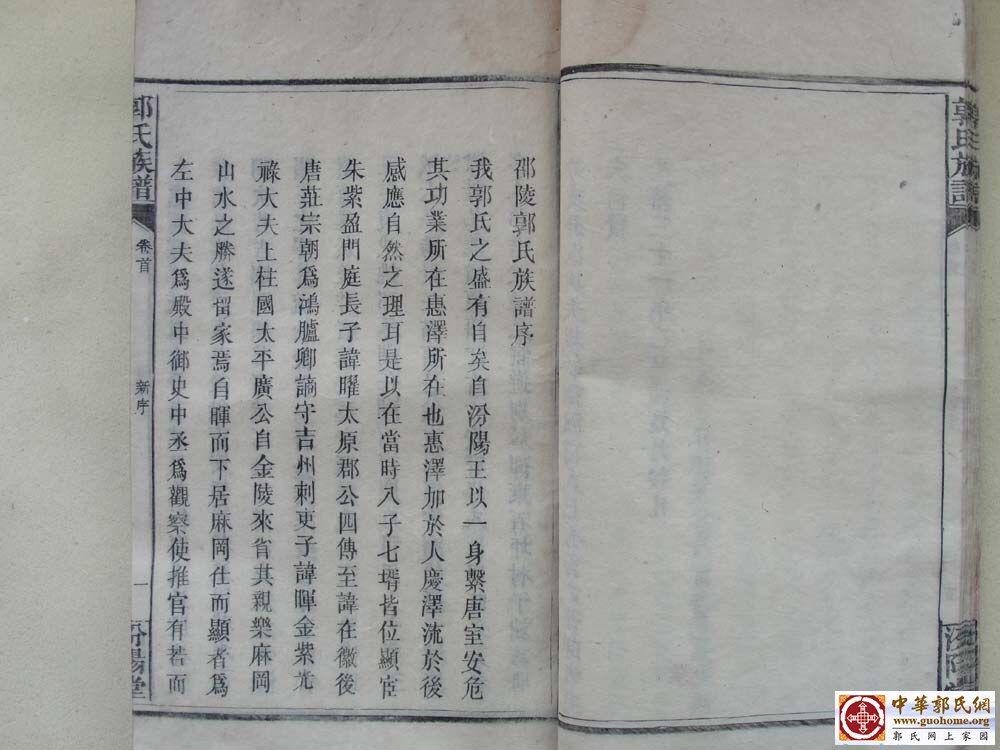 郭氏族譜
邵陵郭氏族譜序
我郭氏之盛有自矣自汾陽王以一身繫唐室安危
其功業所在惠澤所在也惠澤加於人慶澤流於後
感應自然之理耳是以在當時八子七壻皆位顯宦
朱紫盈門庭長子諱曜太原郡公四傳至諱在徽後
唐莊宗朝爲鴻臚卿謫守吉州刺吏子諱暉金紫光
祿大夫上柱國太平廣公自金陵來省其親樂麻岡
山水之勝遂留家焉自暉而下居麻岡仕而顯者爲
左中大夫爲殿中御史中丞爲觀察使推官有若而
郭氏族譜
卷首
新序
一
汾陽堂
中華郭氏網
www.guohome.org
郭氏网上家园